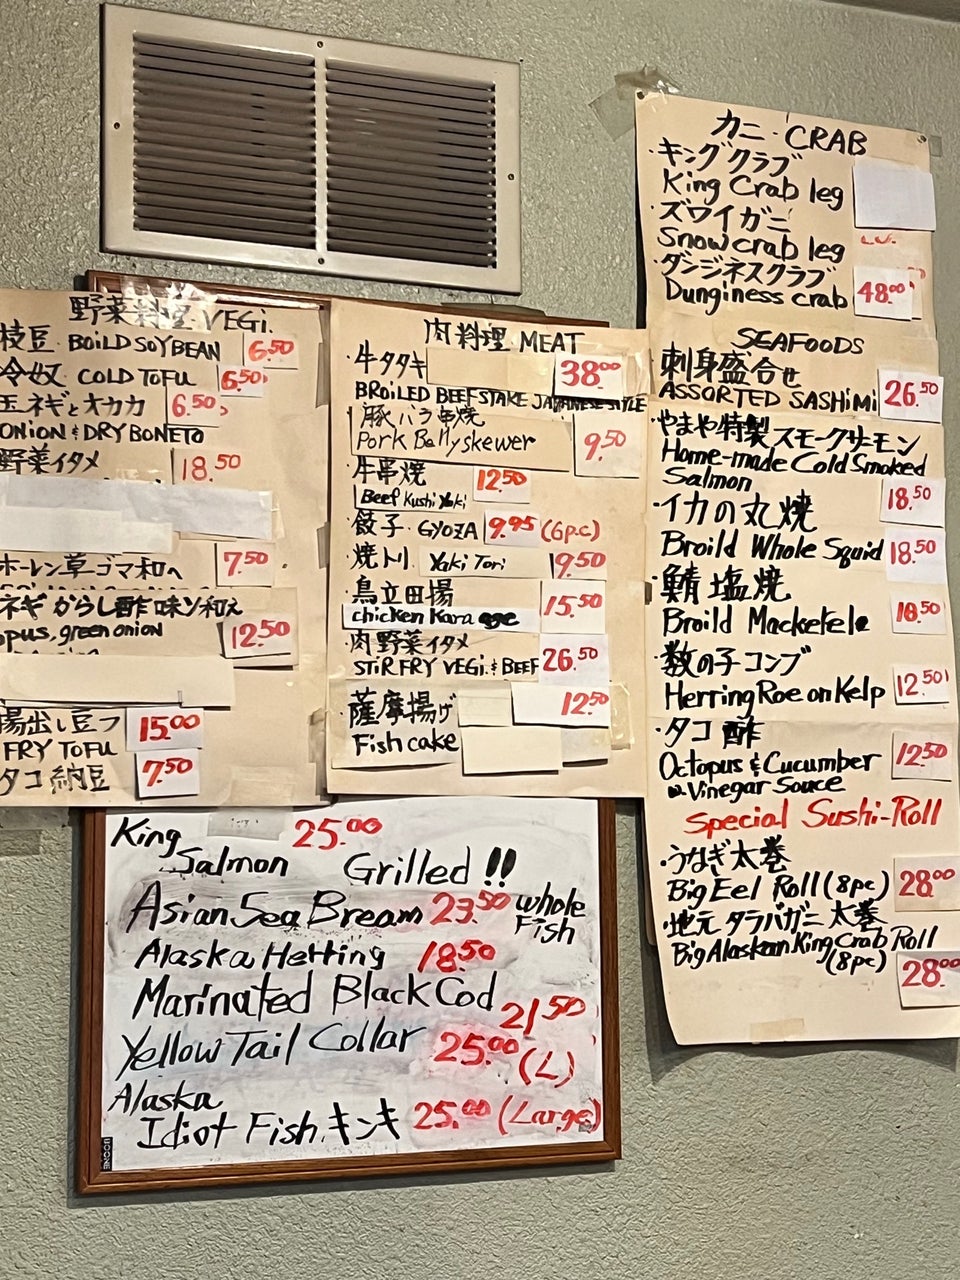 野菜料理 VEGi.
枝豆 BOiLD SOYBEAN 6.50
冷奴 COLD TOFU 6.50
玉ネギとオカカ 6.50
ONiON & DRY BONETO
野菜イタメ 18.50
ホーレン草ゴマ和へ 7.50
ネギからし酢味ソ和え
opus, green onion 12.50
揚出し豆フ 15.00
FRY TOFU
タコ納豆 7.50
肉料理 MEAT
牛タタキ 38.00
BROiLED BEEFSTAKE JAPANESE STYLE
豚バラ串焼
Pork Belly skewer 9.50
牛串焼 12.50
Beef Kushi Yaki
餃子 GYOZA 9.95 (6p.c)
焼トリ Yaki Tori 19.50
鳥立田揚 15.50
chicken Kara age
肉野菜イタメ
STiR FRY VEGi. & BEEF 26.50
薩摩揚げ 12.50
Fish cake
カニ・CRAB
キングクラブ
King Crab leg
ズワイガニ
Snow crab leg
ダンジネスクラブ
Dunginess crab 48.00
SEAFOODS
刺身盛合せ
ASSORTED SASHiMi 26.50
やまや特製スモークサーモン
Home-made Cold Smoked
Salmon 18.50
イカの丸焼
Broild Whole Squid 18.50
鯖塩焼
Broild Mackekele 18.50
数の子コンブ
Herring Roe on Kelp 12.50
タコ酢
Octopus & Cucumber 12.50
w. Vinegar Souce
Special Sushi-Roll
うなぎ太巻
Big Eel Roll (8pc) 28.00
地元タラバガニ太巻
Big Alaskan King Crab Roll
(8pc) 28.00
King 25.00
Salmon Grilled !!
Asian Sea Bream 23.50 whole
Fish
Alaska Herring 18.50
Marinated Black Cod 21.50
Yellow Tail Collar 25.00 (L)
Alaska
Idiot Fish. キンキ 25.00 (Large)
BOONE